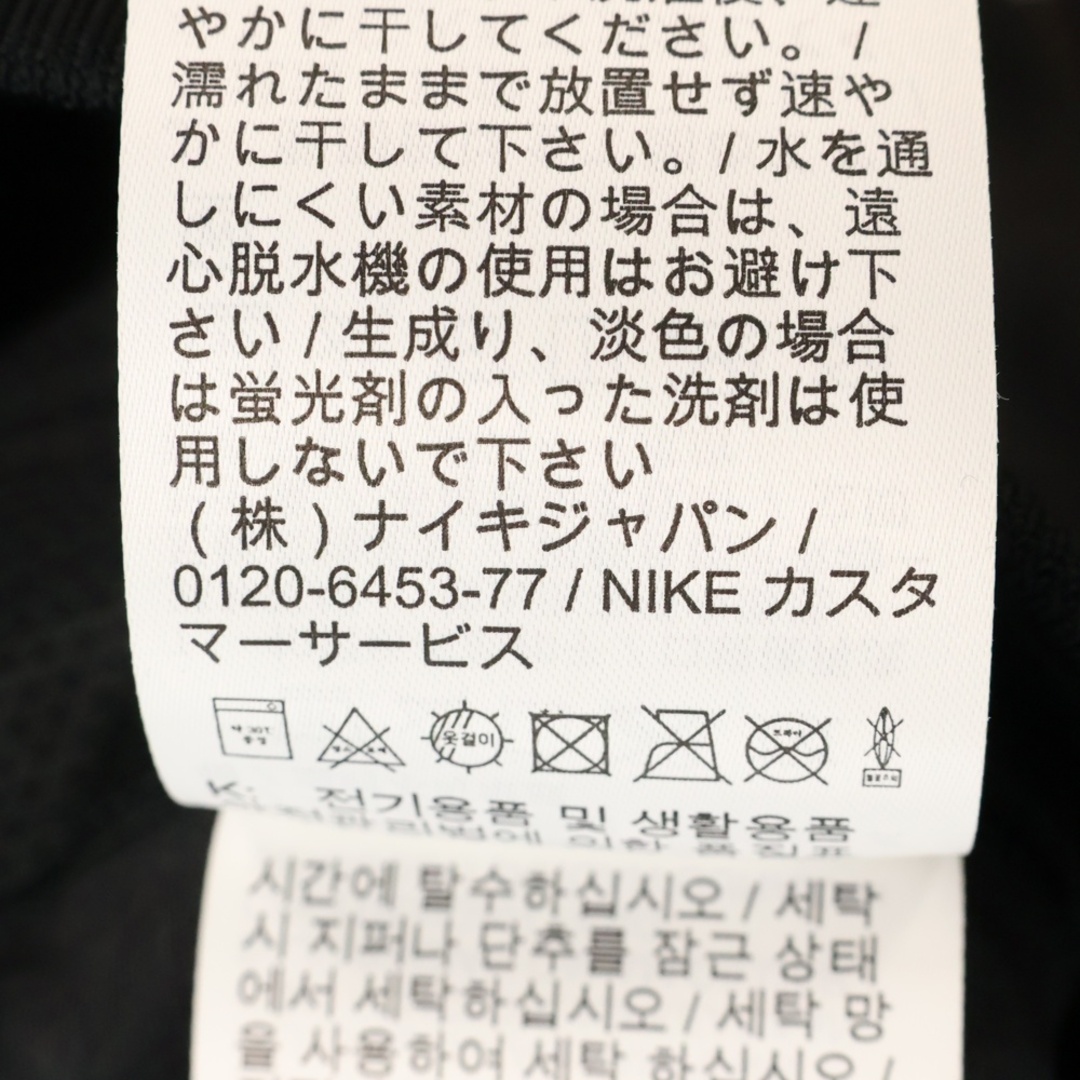 やかに干してください。 /
濡れたままで放置せず速や
かに干して下さい。/ 水を通
しにくい素材の場合は、遠
心脱水機の使用はお避け下
さい / 生成り、淡色の場合
は蛍光剤の入った洗剤は使
用しないで下さい
( 株 ) ナイキジャパン /
0120-6453-77 / NIKE カスタ
マーサービス
옷걸이
K: 전기용품 및 생활용품
시간에 탈수하십시오 / 세탁
시 지퍼나 단추를 잠근 상태
에서 세탁하십시오 / 세탁 망
을 사용하여 세탁 하십시오 /